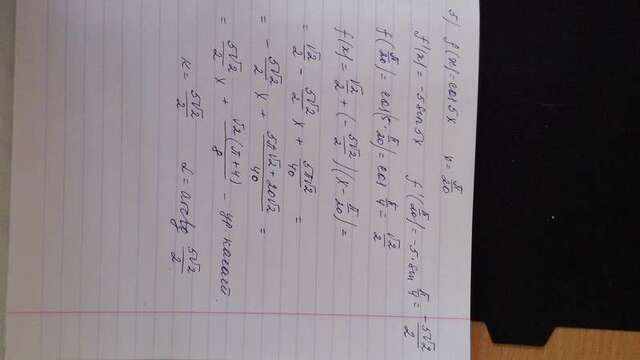 5) f(x)=cos5x x=π/20
f'(x)=-5sin5x f'(π/20)=-5·sin π/4 = -5√2/2
f(π/20)=cos(5·π/20)=cos π/4=√2/2
f(x)=√2/2+(-5√2/2)(x-π/20)=
=√2/2-5√2/2 x+5π√2/40=
=-5√2/2 x+5π√2+20√2/40=
=5√2/2 x+√2(π+4)/8 - ур. касат.
к=5√2/2 α=arctg 5√2/2